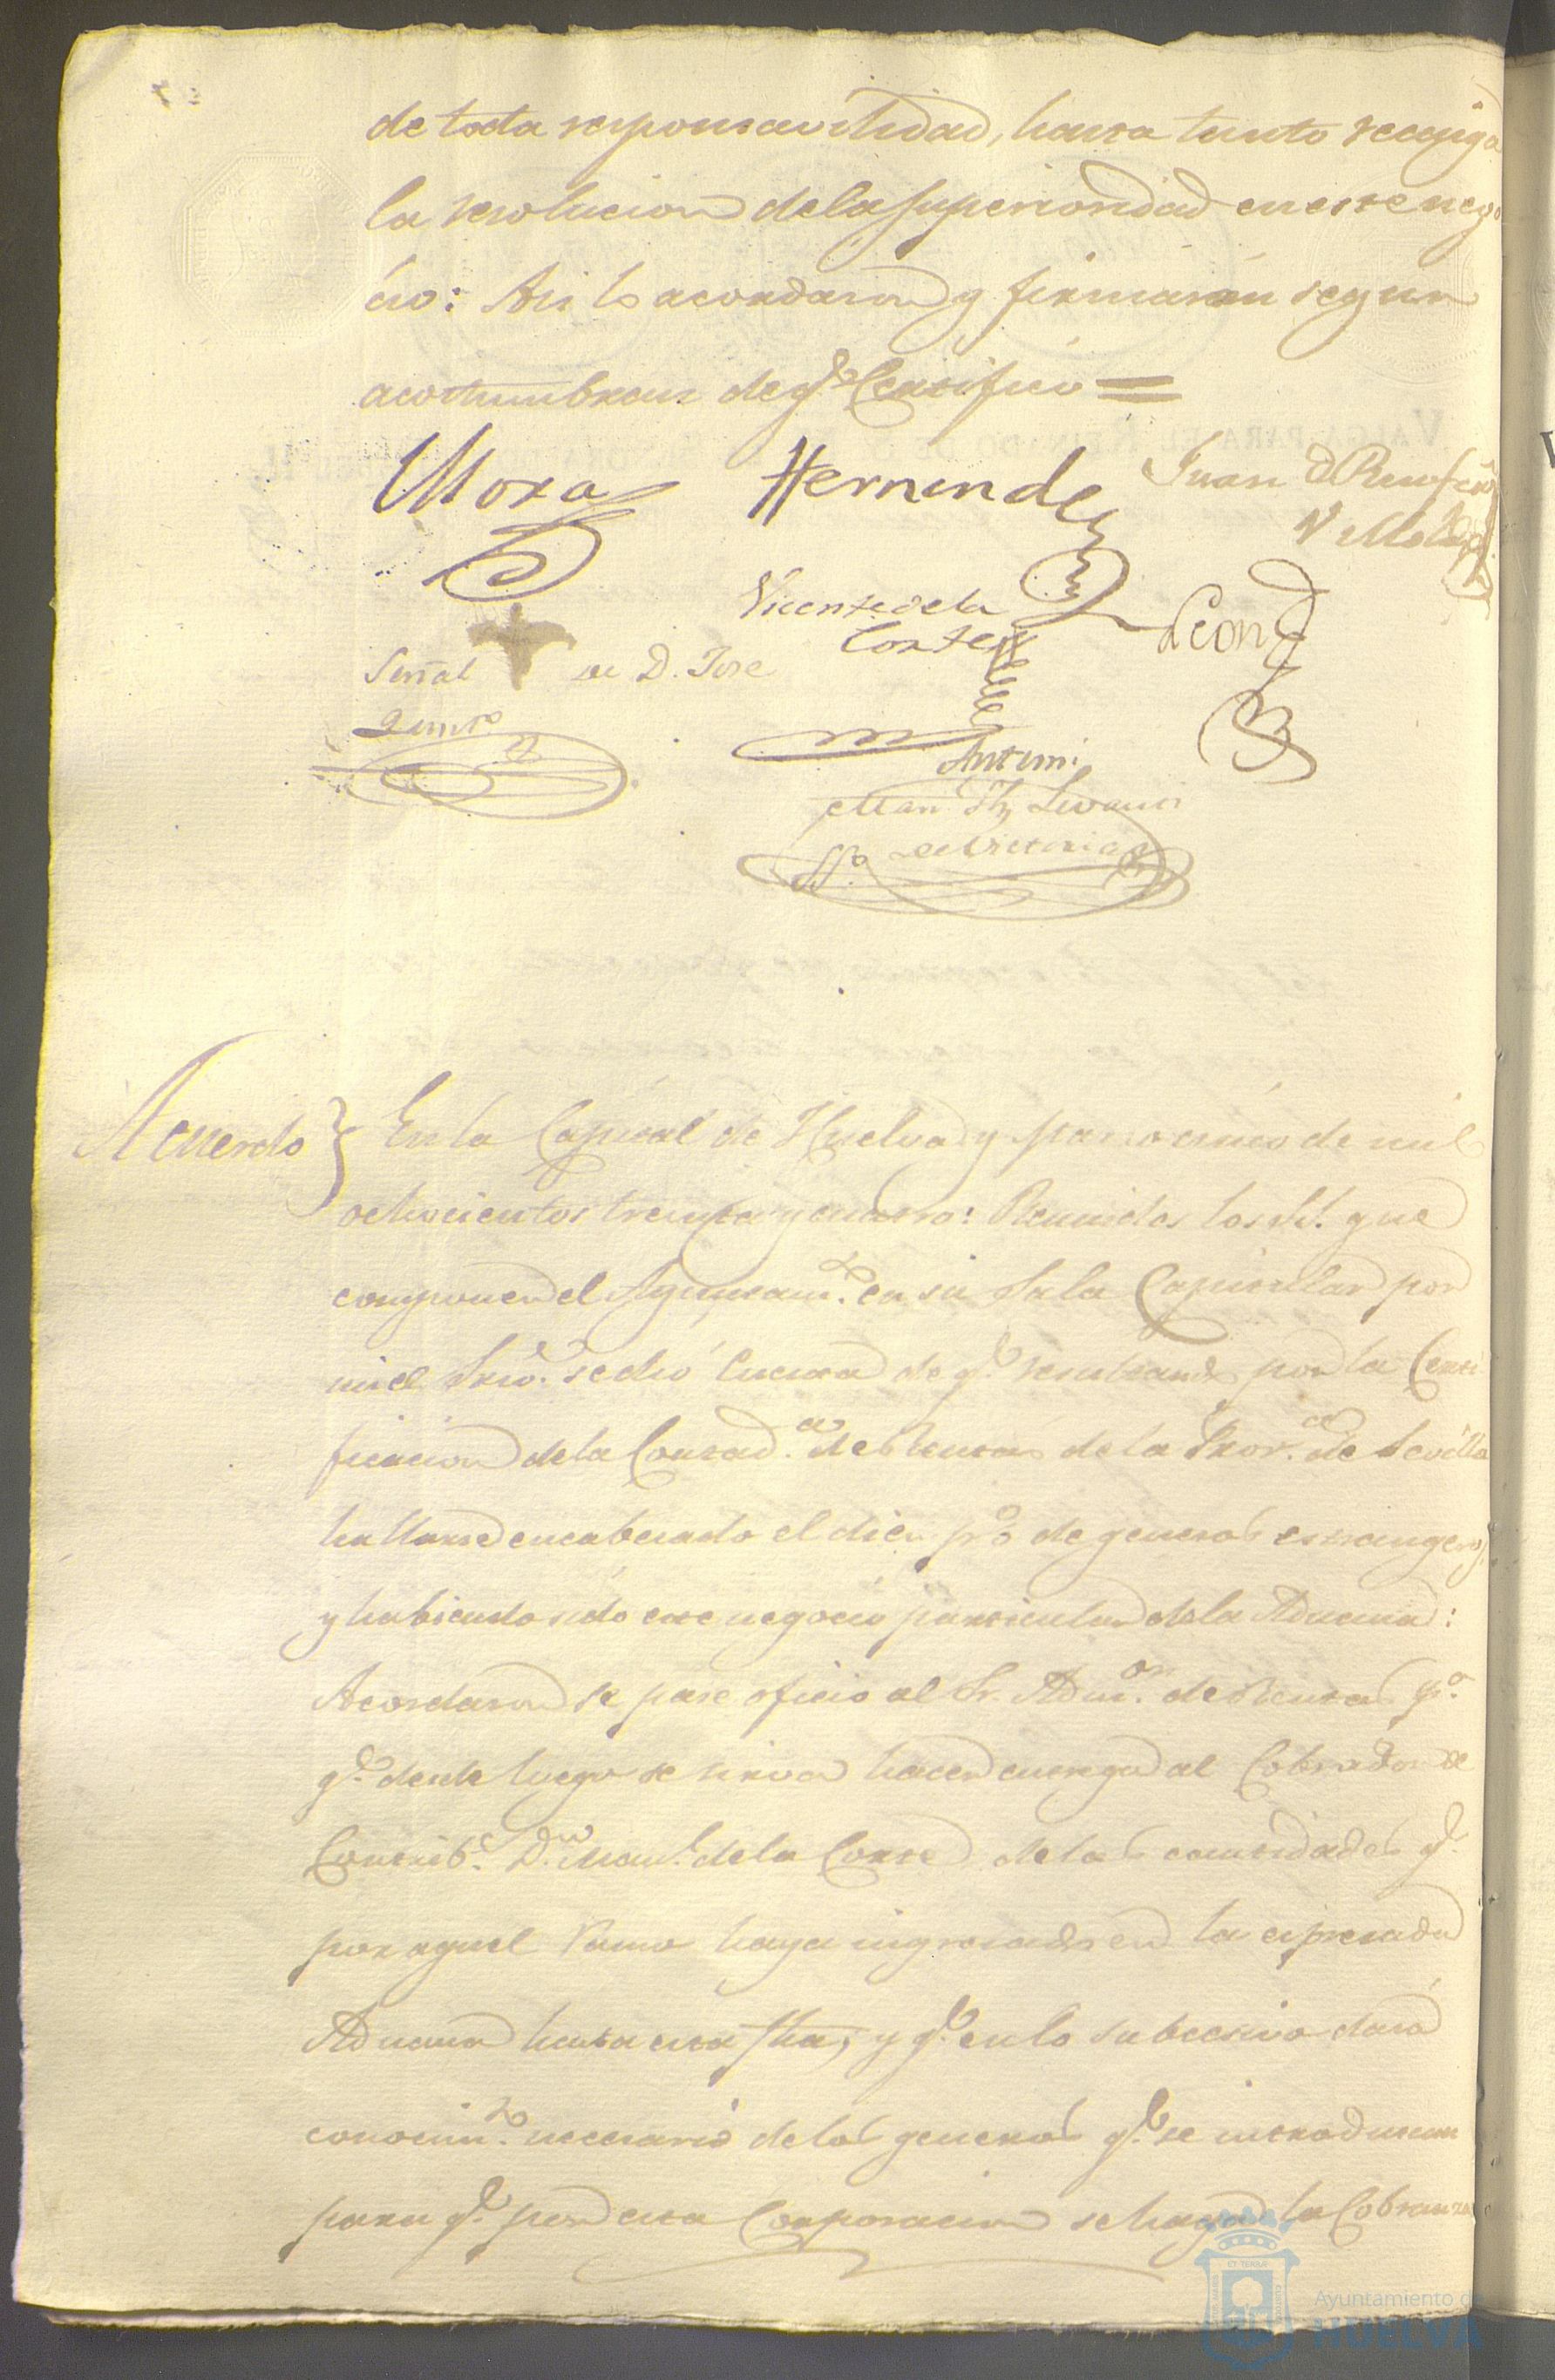 de toda responsavilidad, hasta tanto recayga
la resolucion de la superioridad en este nego
cio: Asi lo acordaron y firmarán segun
acostumbran de q.e Certifico =
Mora Hernandez Juan
Vicente de la
Corte Leon
Señal de D. Jose
Quint.o
Antemi
Man.
de Victoria
S.o
Acuerdo } En la Capital de Huelva y marzo cinco de mil
ochocientos treinta y cuatro: Reunidos los SS. que
componen el Ayuntam.to en su Sala Capitular por
mi el Srio. se dió cuenta de q.e resultando por la Certi
ficacion de la Contad.a de Rentas de la Prov.a de Sevilla
hallarse encabezado el diez p.o de generos estrangeros,
y habiendo sido este negocio particular de la Aduana:
Acordaron se pase oficio al Sr. Adm.or de Rentas p.a
q.e desde luego se sirva hacer entrega al Cobrador de
Contrib.s D.n Man.l de la Corte de las cantidades q.e
por aquel ramo haya ingresados en la espresada
Aduana hasta esta fha, y q.e en lo subcesivo dará
conocim.to necesario de los generos q.e se introduzcan
para q.e por esta Corporacion se haga la Cobranza
Ayuntamiento de
HUELVA